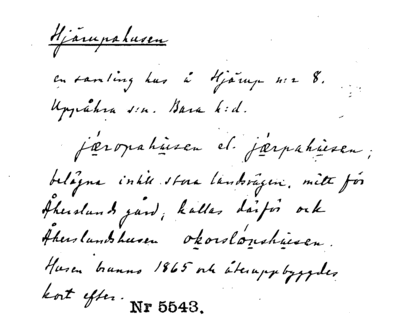 Hjärupahusen
en samling hus å Hjärup n:r 8.
Uppåkra s:n. Bara h:d.
jæropahusen el. jærpahusen;
belägna intill stora landsvägen, mitt för
Åkerslunds gård; kallas därför ock
Åkerslundshusen okorslonshusen.
Husen brunno 1865 och återuppbyggdes
kort efter.
Nr 5543.